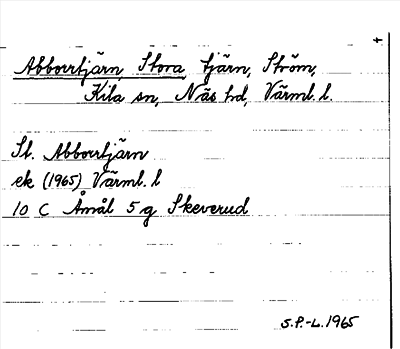 +
Abborrtjärn, Stora, tjärn, Ström,
Kila sn, Näs hd, Värml. l.
St. Abborrtjärn
ek (1965) Värml. l
10 C Åmål 5 g Skeverud
S.P.-L. 1965